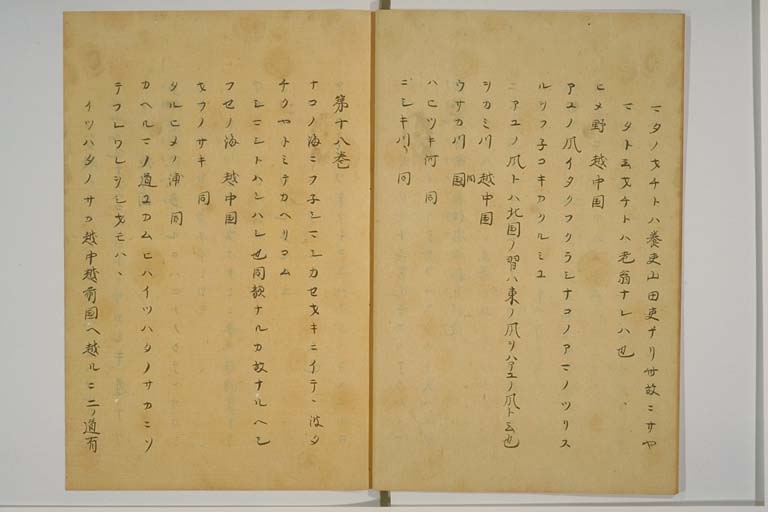 マタノヲチトハ養吏山田吏ナリ世故ニサヤ
マタト云ヲチトハ老翁ナレハ也
ヒメ野ニ越中国
アユノ爪イタクフクラシナコノアマノツリス
ルツフ子コキカクルミユ
アユノ爪トハ北国ノ習ハ東ノ爪ヲハアユノ爪ト云也
シカミ川 越中国
ウサカ川 同国
ハヒツキ河 同
ニシキ川 同
第十八巻
ナコノ海ニフ子シマシカセヲキニイテヽ波タ
チクヤトミテカヘリコム
シマシトハシハシ也同韻ナルカ故ナルヘシ
フセノ海 越中国
ヲフノサキ 同
タルヒメノ浦 同
カヘルマノ道ユカムヒハイツハタノサカニソ
テフレワレシシヲモハヽ
イツハタノサカ越中越前国ヘ越ルニ二ノ道有